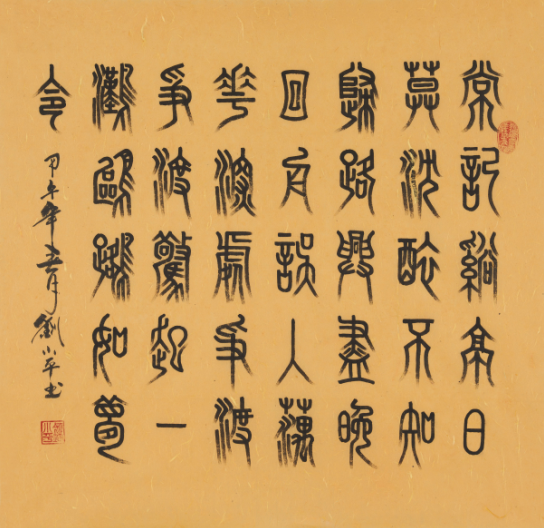 常記谿亭日
莫沈醉不知
歸路興盡晚
回舟誤入藕
花深處爭渡
爭渡驚起一
灘鷗鷺如夢
令
甲午年月劉小平書